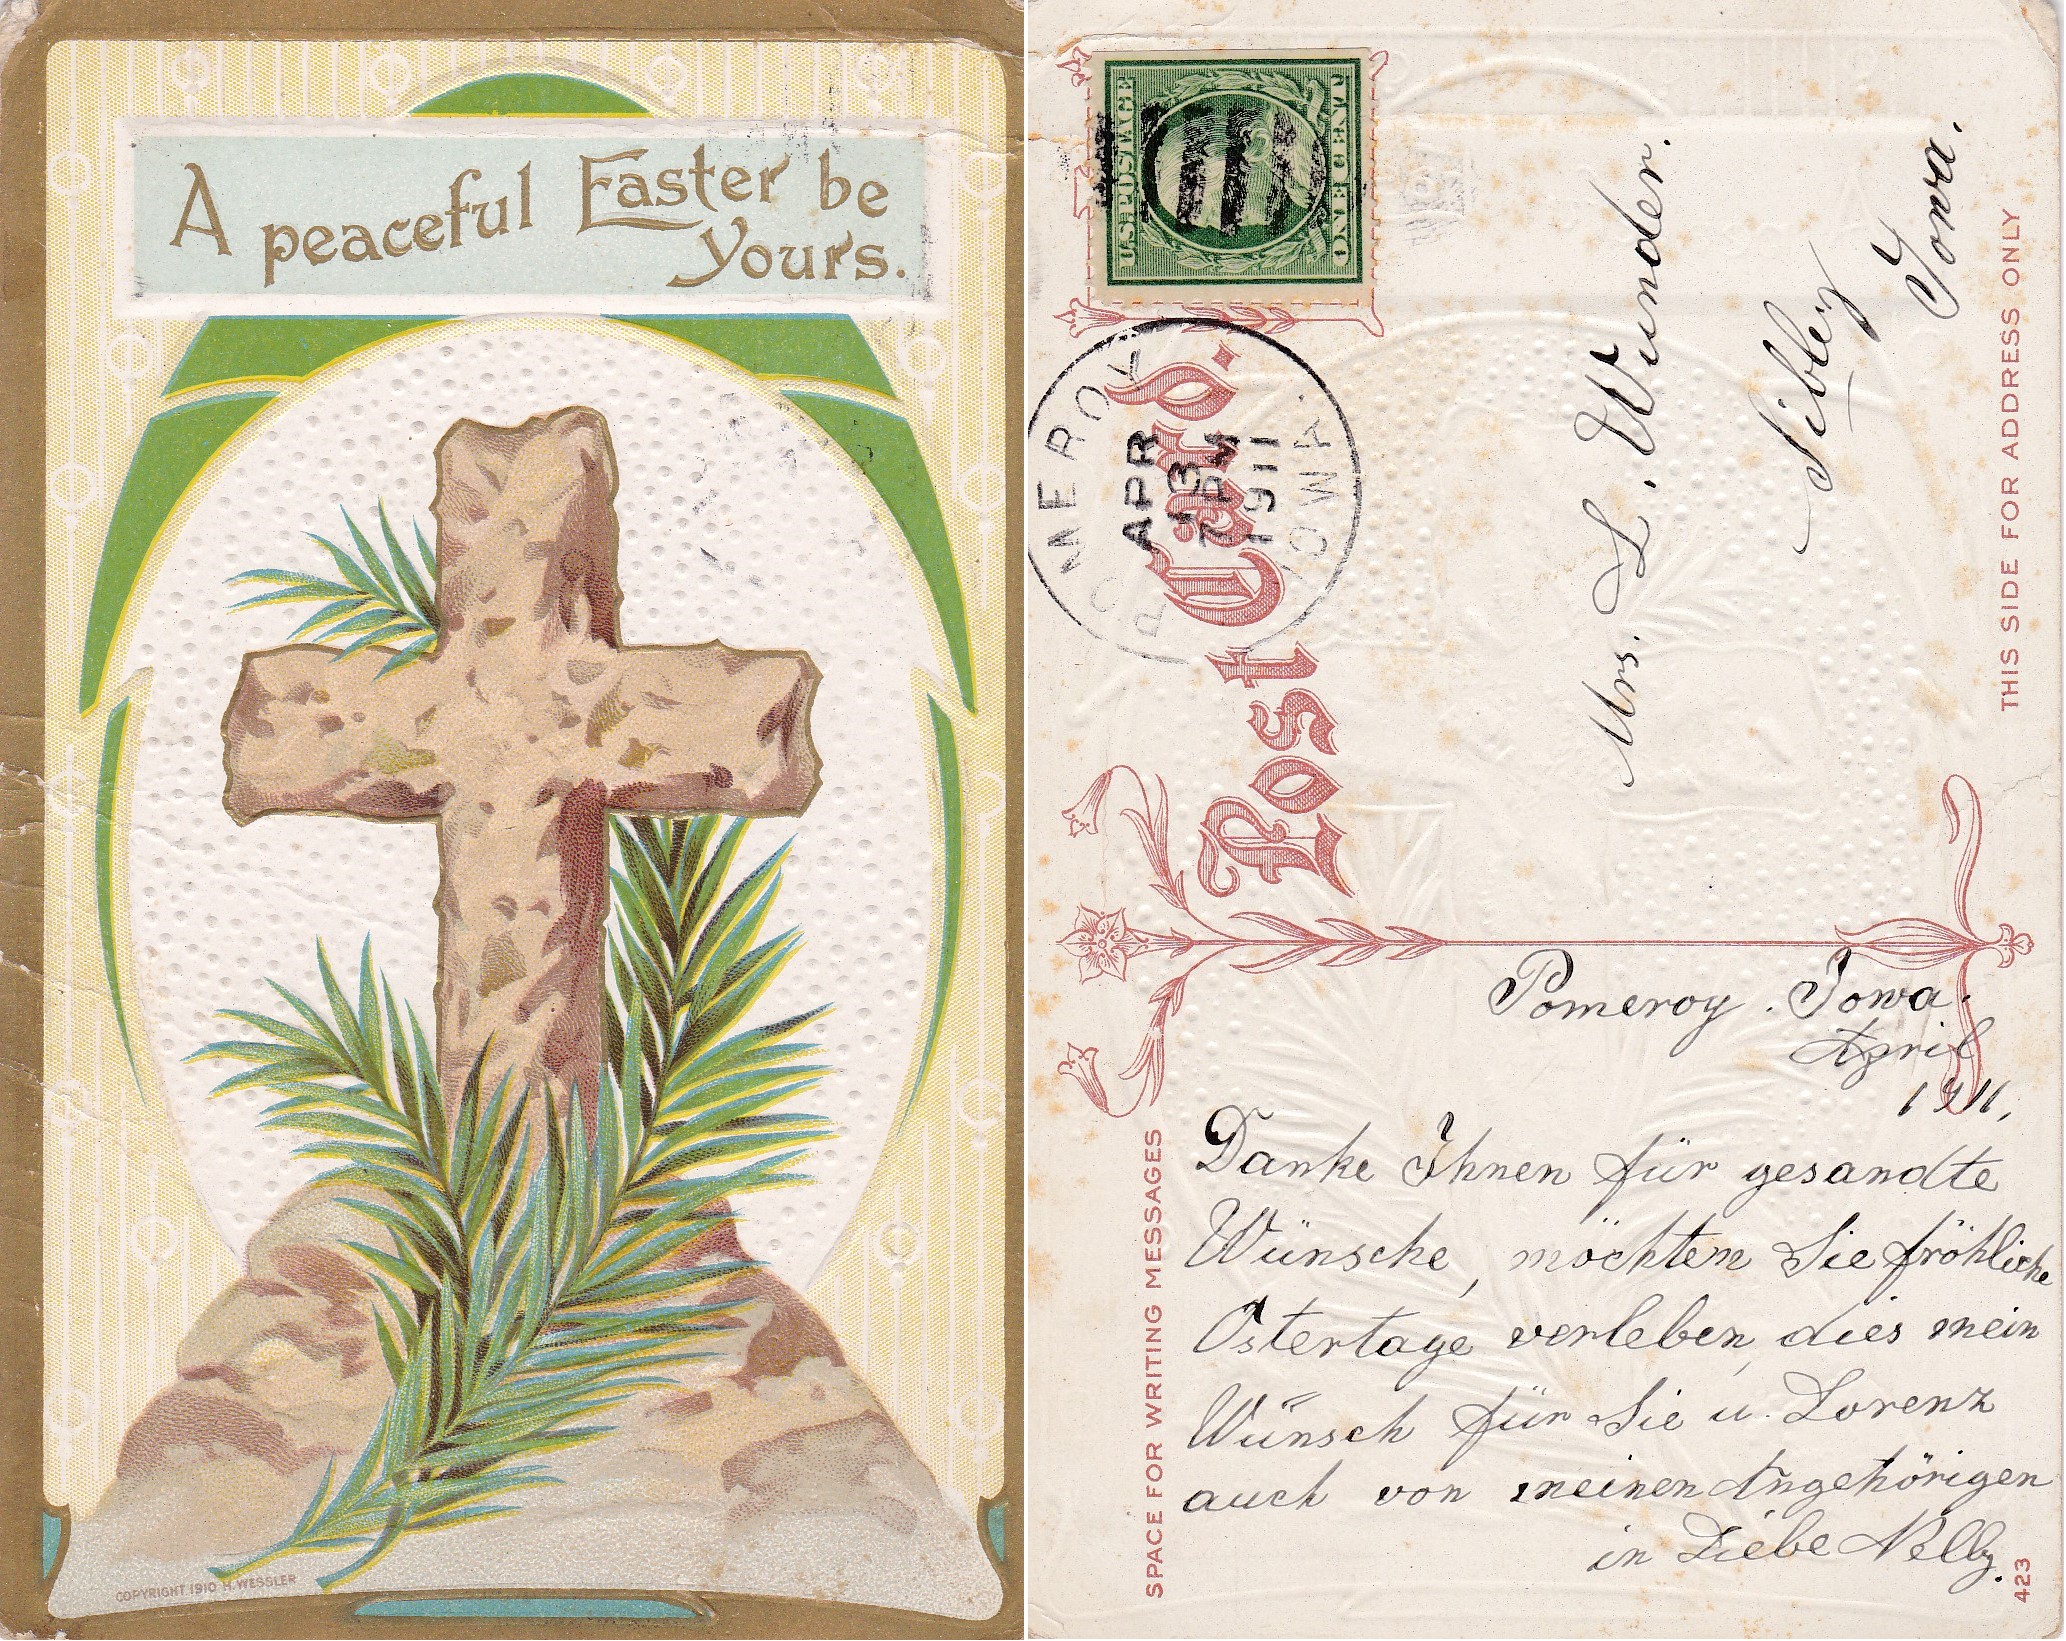 A peaceful Easter be
yours.
COPYRIGHT 1910 H. WESSLER
U.S. POSTAGE
ONE CENT
POMEROY
APR
13
7 PM
1911
IOWA.
Post Card.
Mrs. L. Wunder.
Sibley
Iowa.
THIS SIDE FOR ADDRESS ONLY
SPACE FOR WRITING MESSAGES
Pomeroy. Iowa.
April
1911,
Danke Ihnen für gesandte
Wünsche, möchten Sie fröhliche
Ostertage verleben, dies mein
Wünsch für Sie u. Lorenz
auch von meinen Angehörigen
in Liebe Nelly.
423